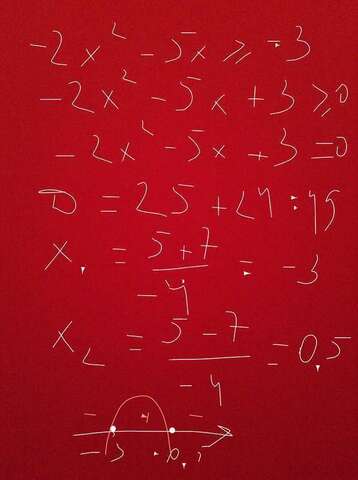 -2x² - 5x ≥ -3
-2x² - 5x + 3 ≥ 0
-2x² - 5x + 3 = 0
D = 25 + 24 = 49
x₁ = (5 + 7)/(-4) = -3
x₂ = (5 - 7)/(-4) = 0,5
- + -
-3 0,5